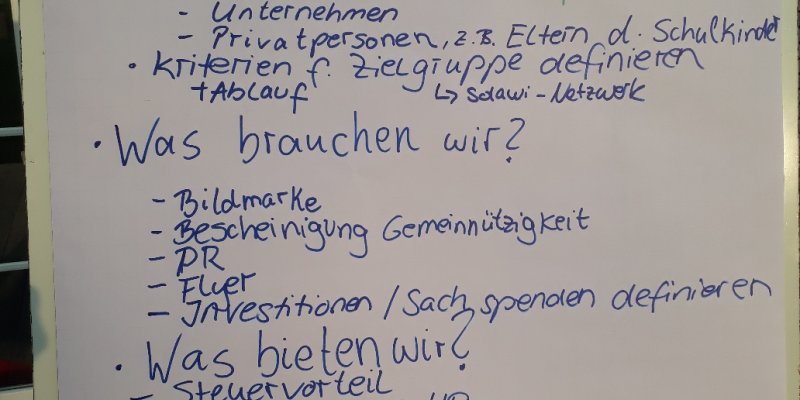 - Unternehmen
- Privatpersonen, z.B. Eltern d. Schulkinder
• Kriterien f. Zielgruppe definieren
+Ablauf ↳ Solawi-Netzwerk
• Was brauchen wir?
- Bildmarke
- Bescheinigung Gemeinnützigkeit
- PR
- Flyer
- Investitionen / Sachspenden definieren
• Was bieten wir?
- Steuervorteil